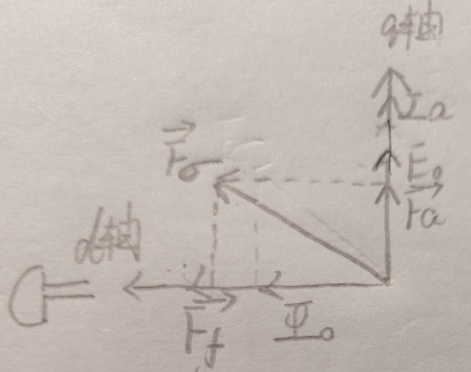 q轴
İa
Ė₀
F⃗a
F⃗δ
d轴
F⃗f
Φ̇₀